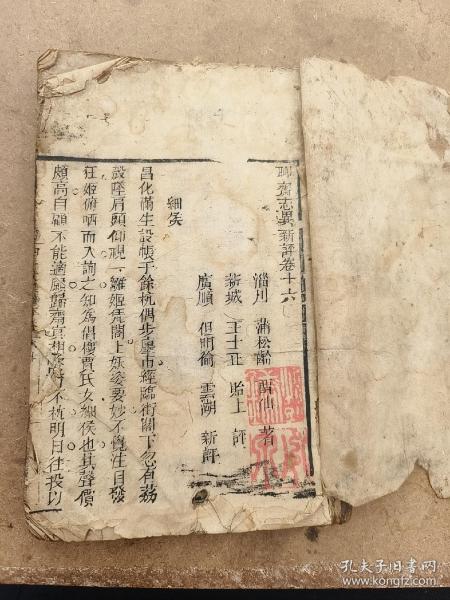 聊齋志異新評卷十六
淄川 蒲松齡 留仙 著
新城 王士正 貽上 評
廣順 但明倫 雲湖 新評
細侯
昌化滿生設帳于餘杭偶步廛市經臨街閣下忽有荔
殼墜肩頭仰視一雛姬凭閣上妖姿要妙不覺注目發
狂姬俯哂而入詢之知為倡樓賈氏女細侯也其聲價
頗高自顧不能適願歸齋冥想終宵不枕明日往投以
孔夫子旧书网
www.kongfz.com